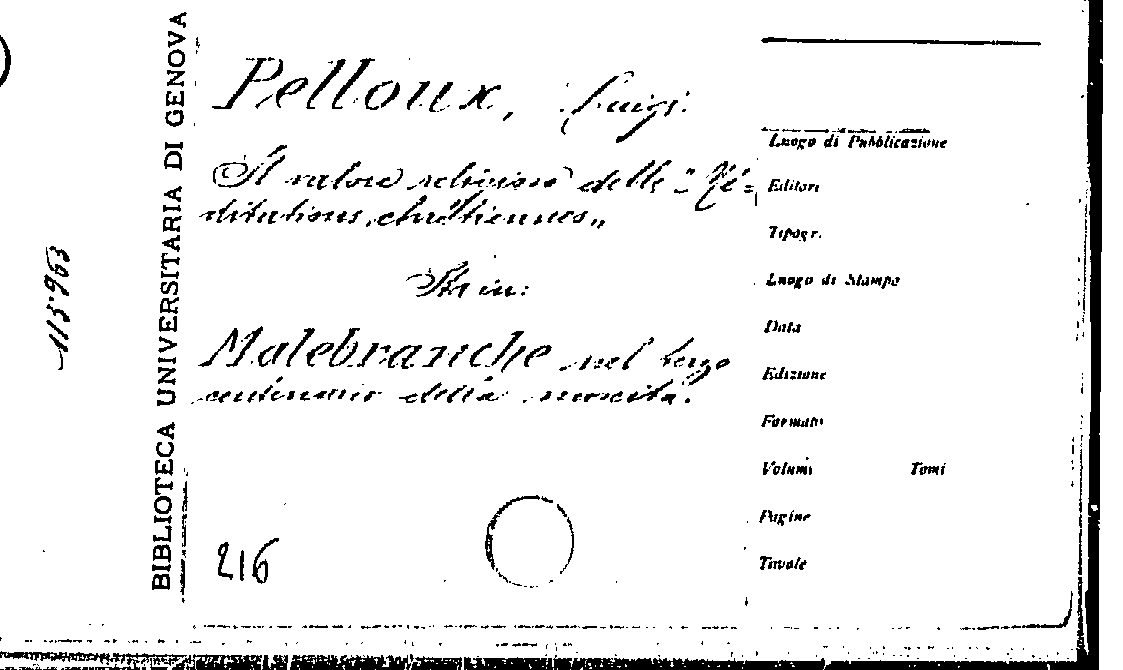 BIBLIOTECA UNIVERSITARIA DI GENOVA
115963
Pelloux, Luigi.
Il valore religioso delle "Mé=
ditations chrétiennes„
Sta in:
Malebranche nel terzo
centenario della nascita.
216
Luogo di Pubblicazione
Editori
Tipogr.
Luogo di Stampa
Data
Edizione
Formato
Volumi Tomi
Pagine
Tavole